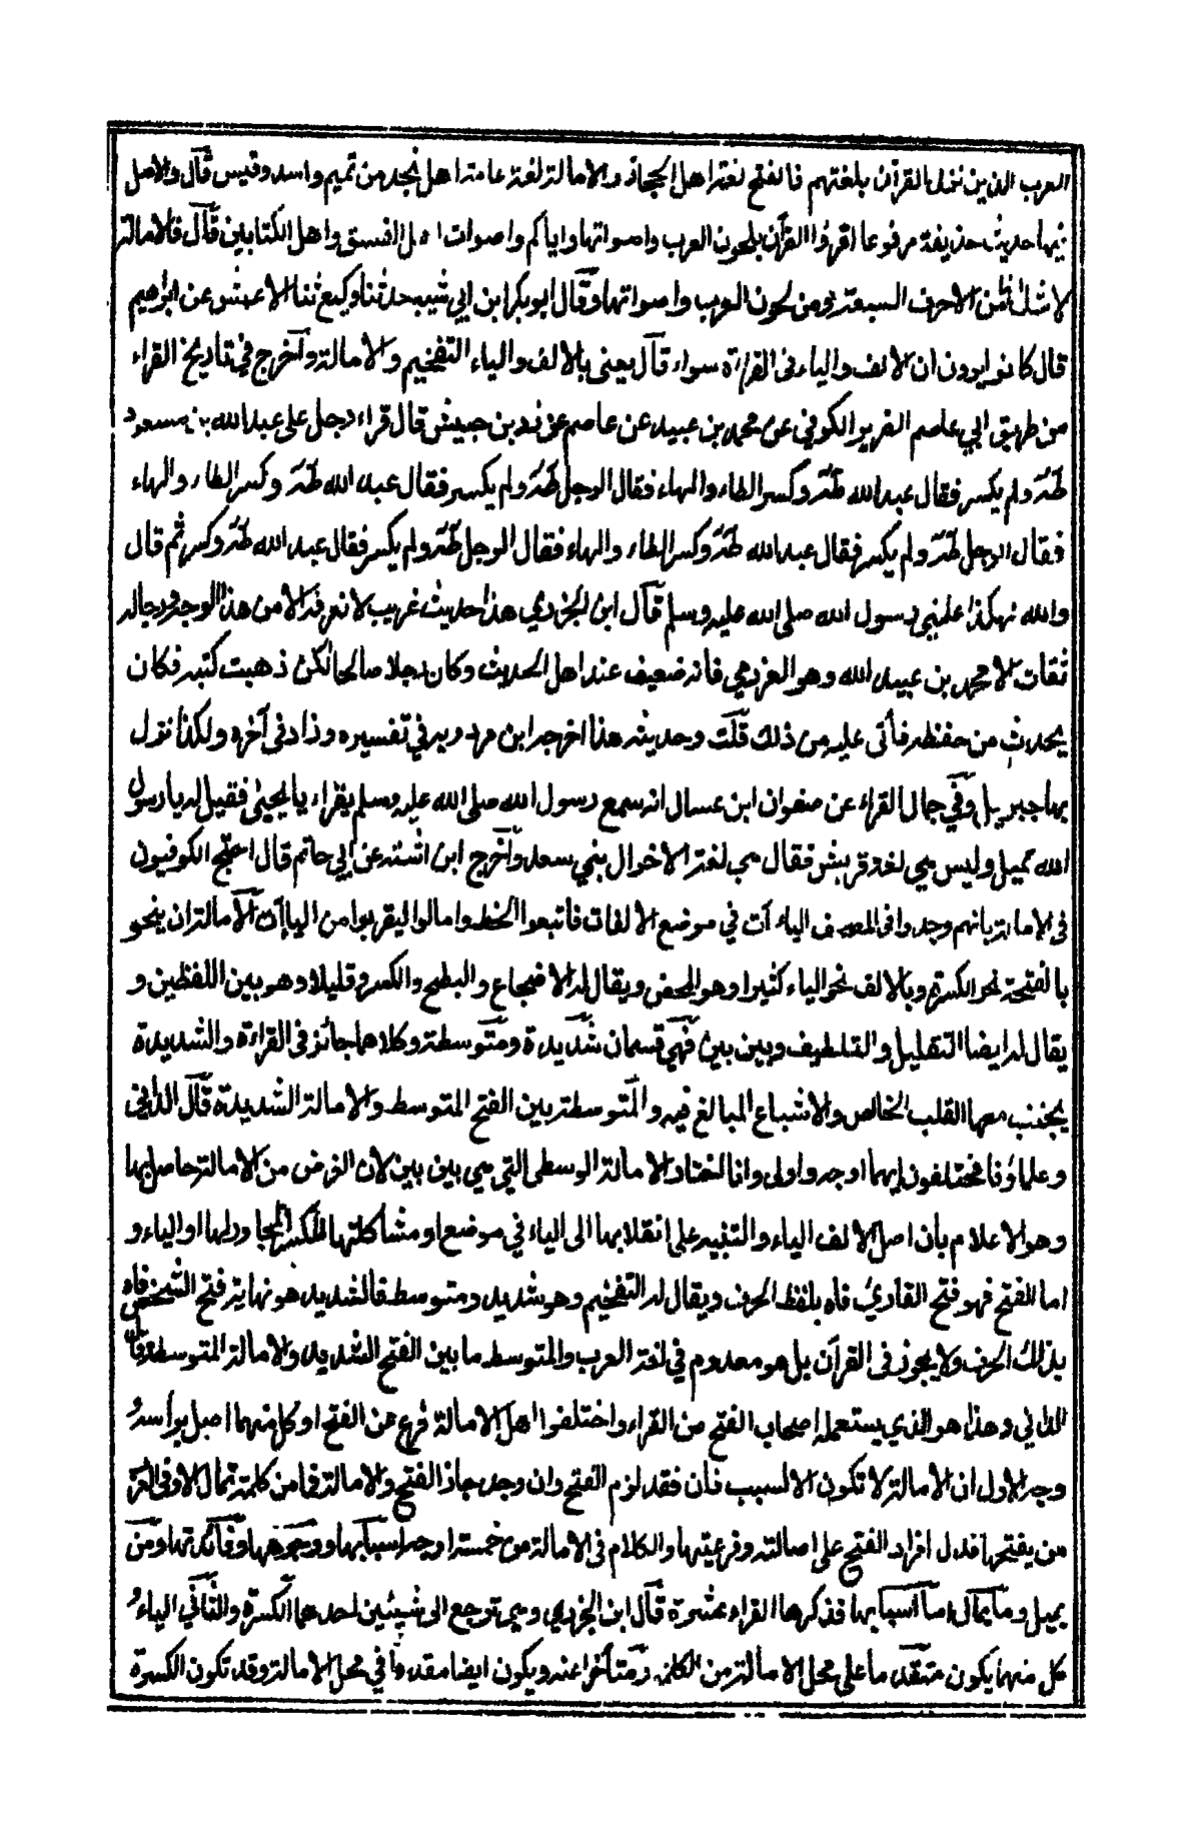 العرب الذين نزل القرآن بلغتهم فالفتح لغة اهل الحجاز والامالة لغة عامة اهل نجد من تميم واسد وقيس قال والاصل
فيها حديث حذيفة مرفوعا اقرؤا القرآن بلحون العرب واصواتها واياكم واصوات اهل الفسق واهل الكتابين قال فالامالة
لا شك من الاحرف السبعة ومن لحون العرب واصواتها وقال ابو بكر ابن ابي شيبة حدثنا وكيع ثنا الاعمش عن ابراهيم
قال كانوا يرون ان الالف والياء فى القراءة سواء قال يعنى بالالف والياء التفخيم والامالة وآخرج في تاريخ القراء
من طريق ابي عاصم الضرير الكوفي عن محمد بن عبيد عن عاصم عن زر بن حبيش قال قراء رجل على عبد الله بن مسعود
طه ولم يكسر فقال عبد الله طه وكسر الطاء والهاء فقال الرجل طه ولم يكسر فقال عبد الله طه وكسر الطاء والهاء
فقال الرجل طه ولم يكسر فقال عبد الله طه وكسر الطاء والهاء فقال الرجل طه ولم يكسر فقال عبد الله طه وكسر ثم قال
والله لهكذا علمني رسول الله صلى الله عليه وسلم قال ابن الجزري هذا حديث غريب لا نعرفه الا من هذا الوجه ورجاله
ثقات الا محمد بن عبيد الله وهو العزرمي فانه ضعيف عند اهل الحديث وكان رجلا صالحا لكن ذهبت كتبه فكان
يحدث من حفظه فأتى عليه من ذلك قلت وحديثه هذا اخرجه ابن مردويه في تفسيره وزاد فى آخره ولكذا نزل
بها جبريل وفي جمال القراء عن صفوان ابن عسال انه سمع رسول الله صلى الله عليه وسلم يقراء يا يحيى فقيل له يا رسول
الله تميل وليس هي لغة قريش فقال هي لغة الاخوال بني سعد وآخرج ابن اشته عن ابي حاتم قال احتج الكوفيون
فى الامالة بانهم وجدوا فى المصحف الياءآت في موضع الالفات فاتبعوا الخط وامالوا ليقربوا من الياءآت الآمالة ان ينحو
بالفتحة نحو الكسرة وبالالف نحو الياء كثيرا وهو المحض ويقال له الاضجاع والبطح والكسر وقليلا وهو بين اللفظين و
يقال له ايضا التقليل والتلطيف وبين بين فهي قسمان شديدة ومتوسطة وكلاهما جائز فى القراءة والشديدة
يجتنب معها القلب الخالص والاشباع المبالغ فيه والمتوسطة بين الفتح المتوسط والامالة الشديدة قال الدانى
وعلماؤنا مختلفون ايهما اوجه واولى وانا اختار الامالة الوسطى التي هي بين بين لان الغرض من الامالة حاصل بها
وهو الاعلام بأن اصل الالف الياء والتنبيه على انقلابها الى الياء في موضع او مشاكلتها للكسر المجاور لها او الياء و
اما الفتح فهو فتح القاريئ فاه بلفظ الحرف ويقال له التفخيم وهو شديد ومتوسط فالشديد هو نهاية فتح الشخص فاه
بذلك الحرف ولا يجوز فى القرآن بل هو معدوم في لغة العرب والمتوسط ما بين الفتح الشديد والامالة المتوسطة قال
الداني وهذا هو الذي يستعمله اصحاب الفتح من القراء واختلفوا اهل الامالة فرع عن الفتح او كل منهما اصل برأسه و
وجه الاول ان الامالة لا تكون الا لسبب فان فقد لزم الفتح وان وجد جاز الفتح والامالة فما من كلمة تمال الا وفى العرب
من يفتحها فدل اطراد الفتح على اصالته وفرعيتها والكلام فى الامالة من خمسة اوجه اسبابها ووجوهها وفائدتها ومن
يميل وما يمال اما اسبابها فذكرها القراء عشرة قال ابن الجزري وهي ترجع الى شيئين احدهما الكسرة والثاني الياء و
كل منهما يكون متقدما على محل الامالة من الكلمة ومتأخرا عنه ويكون ايضا مقدرا في محل الامالة وقد تكون الكسرة